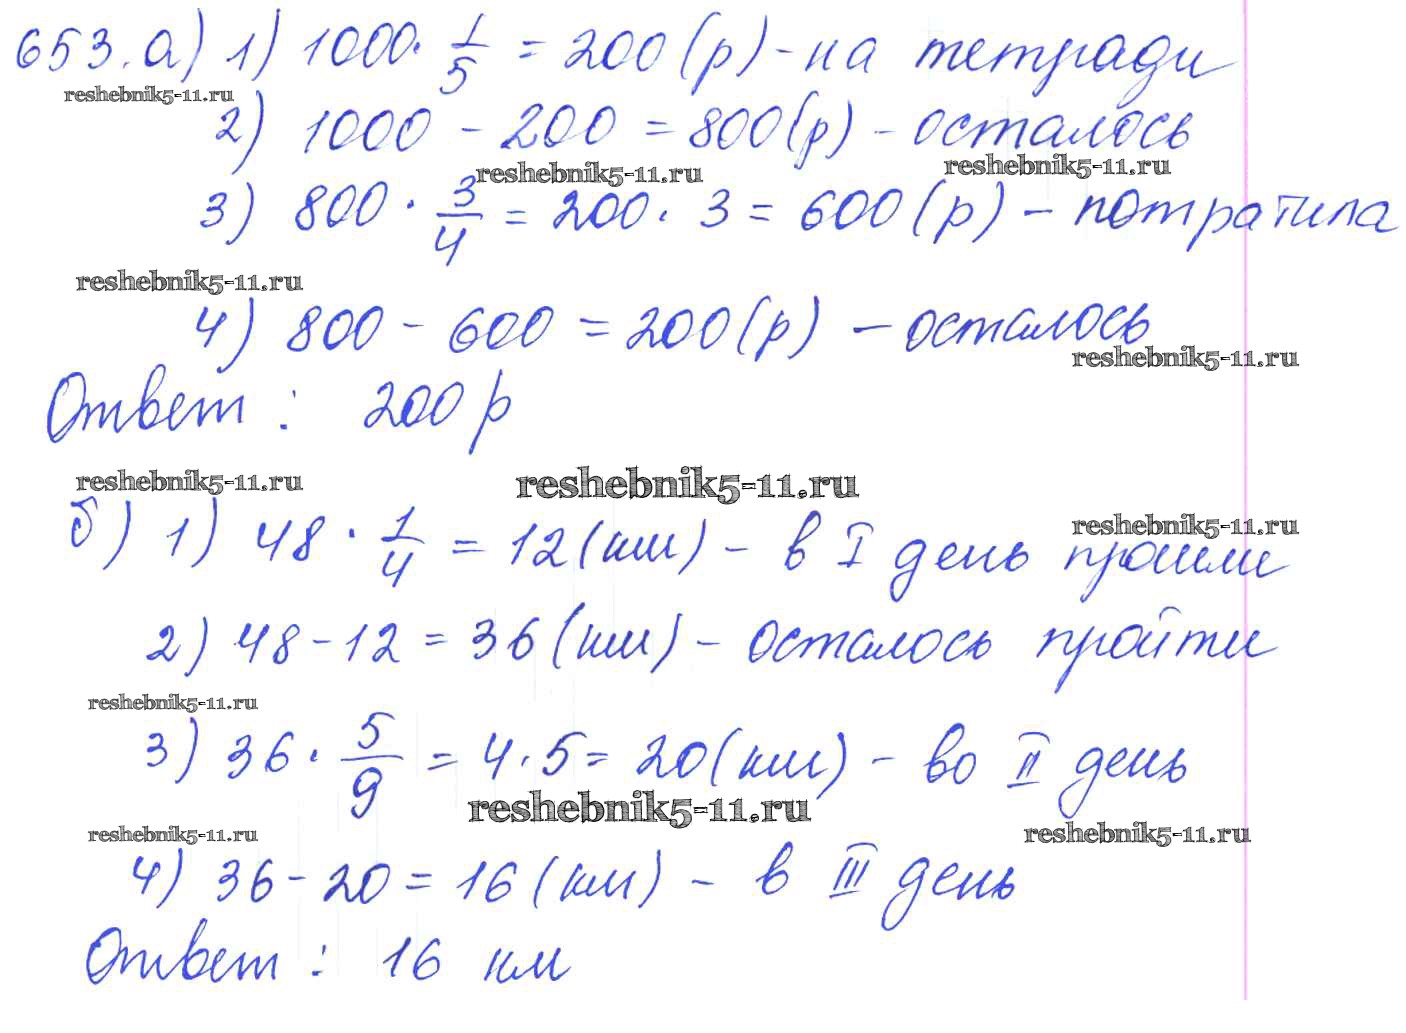 653. а) 1) 1000 · 1/5 = 200 (р) - на тетради
reshebnik5-11.ru
2) 1000 - 200 = 800 (р) - осталось
reshebnik5-11.ru reshebnik5-11.ru
3) 800 · 3/4 = 200 · 3 = 600 (р) - потратила
reshebnik5-11.ru
4) 800 - 600 = 200 (р) - осталось
reshebnik5-11.ru
Ответ: 200 р
reshebnik5-11.ru reshebnik5-11.ru
reshebnik5-11.ru
б) 1) 48 · 1/4 = 12 (км) - в I день прошли
2) 48 - 12 = 36 (км) - осталось пройти
reshebnik5-11.ru
3) 36 · 5/9 = 4 · 5 = 20 (км) - во II день
reshebnik5-11.ru
reshebnik5-11.ru reshebnik5-11.ru
4) 36 - 20 = 16 (км) - в III день
Ответ: 16 км